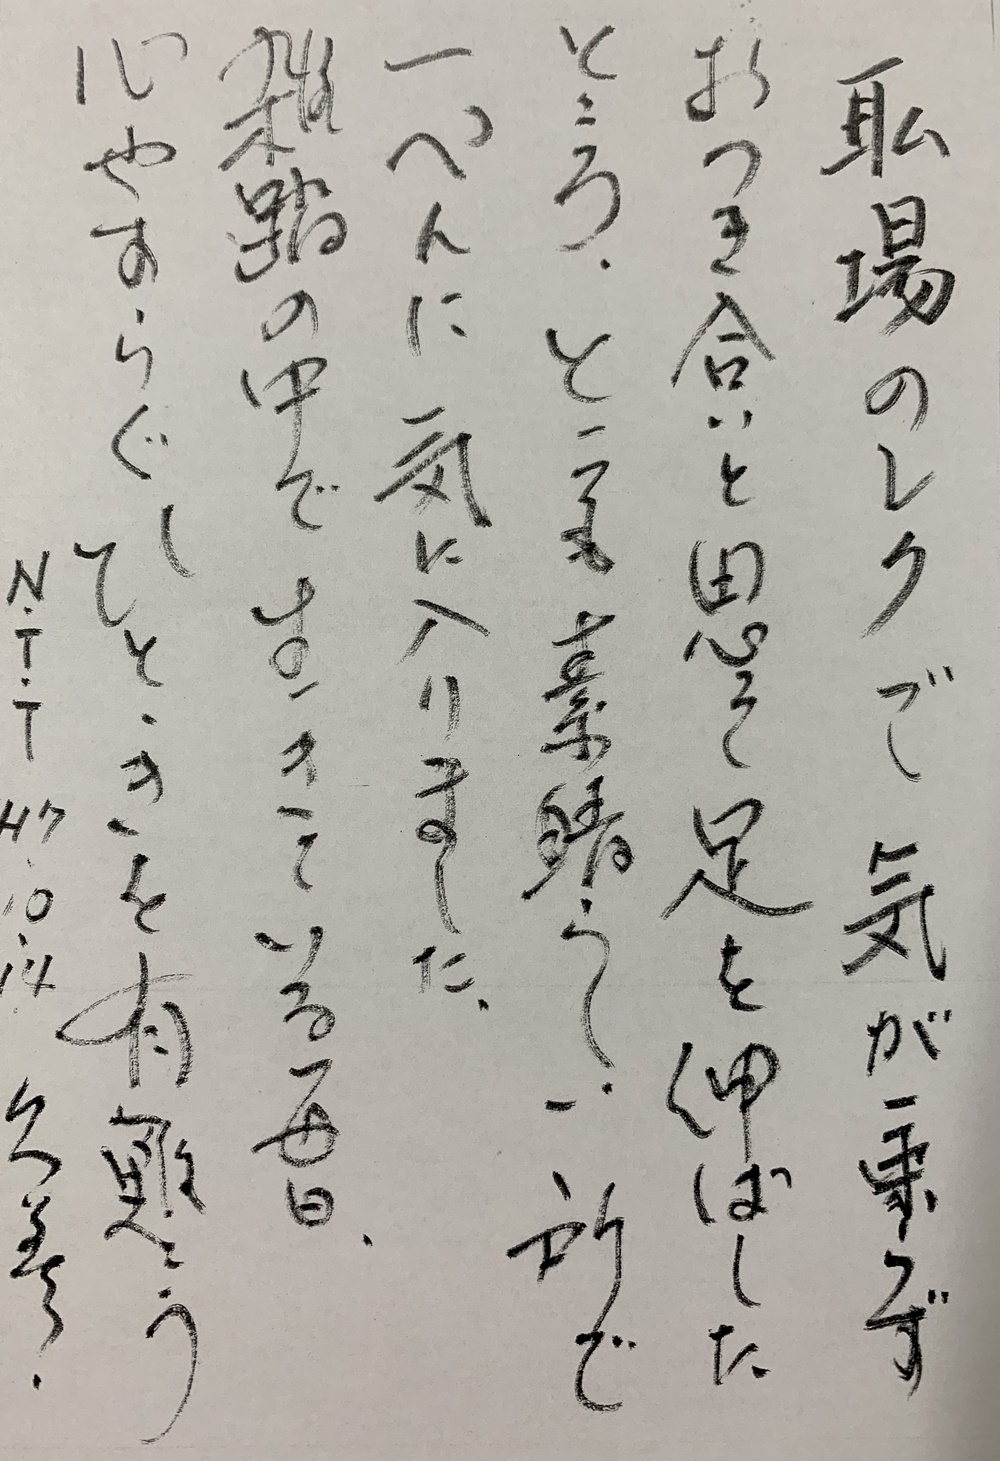 耺場のレクで気が乗らず
おつき合いと思って足を伸ばした
ところ、とっても素晴らしい所で
一ぺんに気に入りました、
雑踏の中で生きている毎日、
心やすらぐし ひとときを有難とう
N.T.T H7.10.14